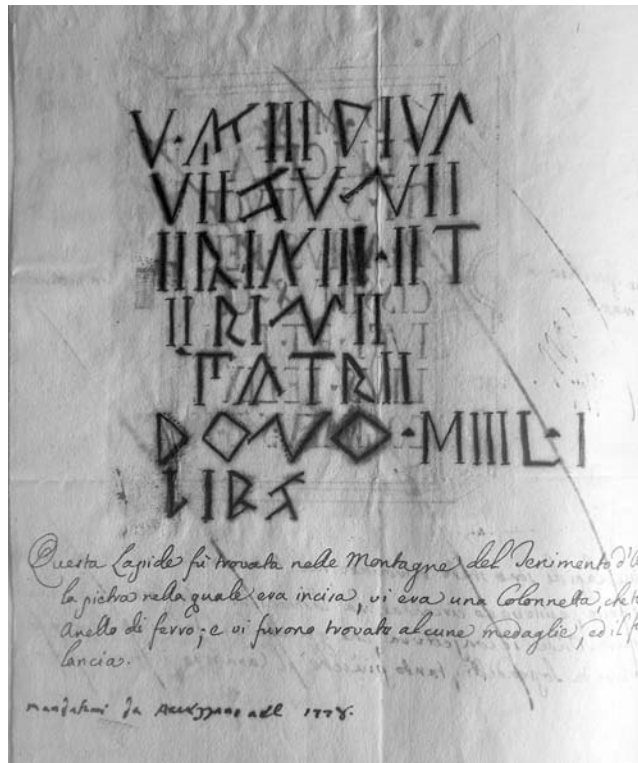 V·ATIII DIVS
VIISVNII
IIRINIII·IIT
IIRINII
PATRII
DONO·MIIIL·I
LIBS
Questa Lapide fù trovata nelle Montagne del Tenimento
la pietra nella quale era incisa, vi era una Colonnetta, che
Anello di ferro; e vi furono trovate alcune medaglie, ed il
lancia.
mandatami da Avezzano nell 1778.